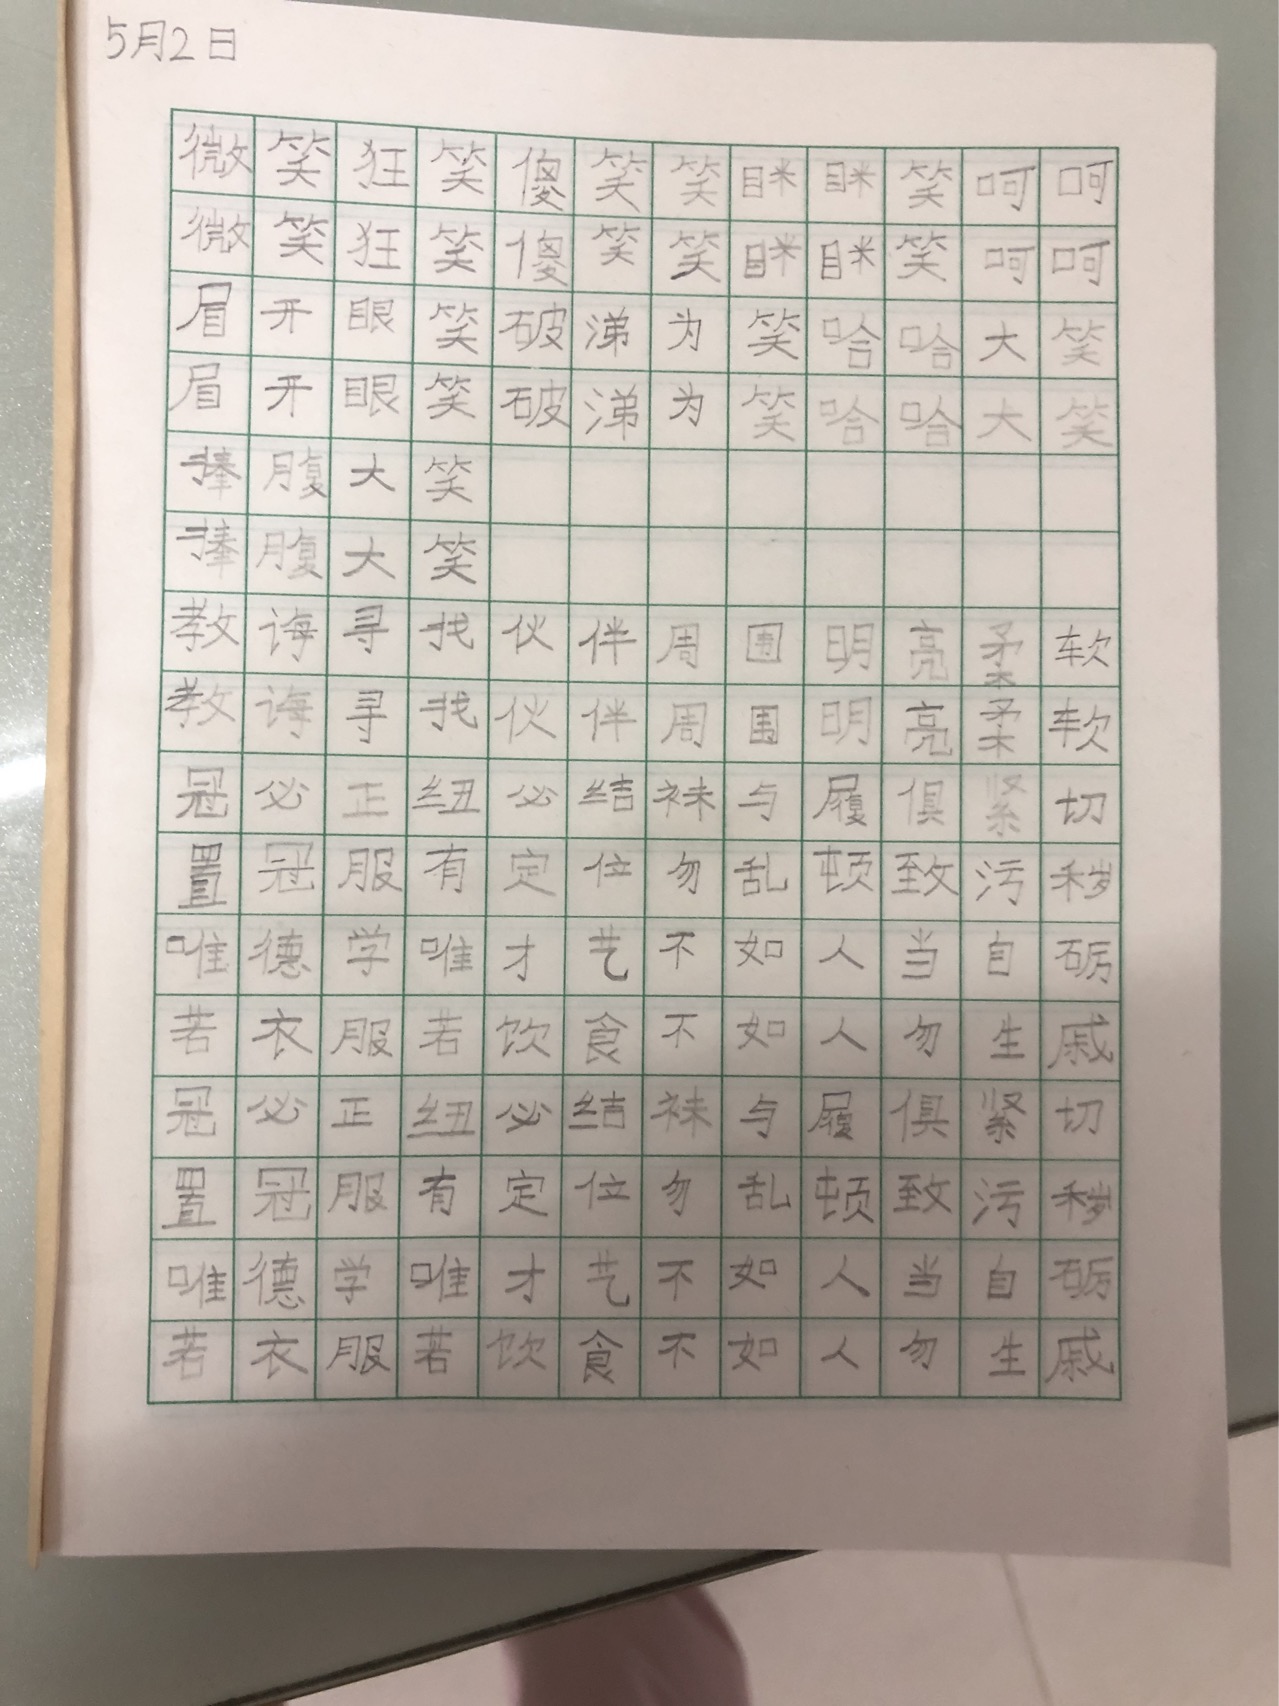 5月2日
微笑狂笑傻笑笑眯眯笑呵呵
微笑狂笑傻笑笑眯眯笑呵呵
眉开眼笑破涕为笑哈哈大笑
眉开眼笑破涕为笑哈哈大笑
捧腹大笑
捧腹大笑
教诲寻找伙伴周围明亮柔软
教诲寻找伙伴周围明亮柔软
冠必正纽必结袜与履俱紧切
置冠服有定位勿乱顿致污秽
唯德学唯才艺不如人当自砺
若衣服若饮食不如人勿生戚
冠必正纽必结袜与履俱紧切
置冠服有定位勿乱顿致污秽
唯德学唯才艺不如人当自砺
若衣服若饮食不如人勿生戚